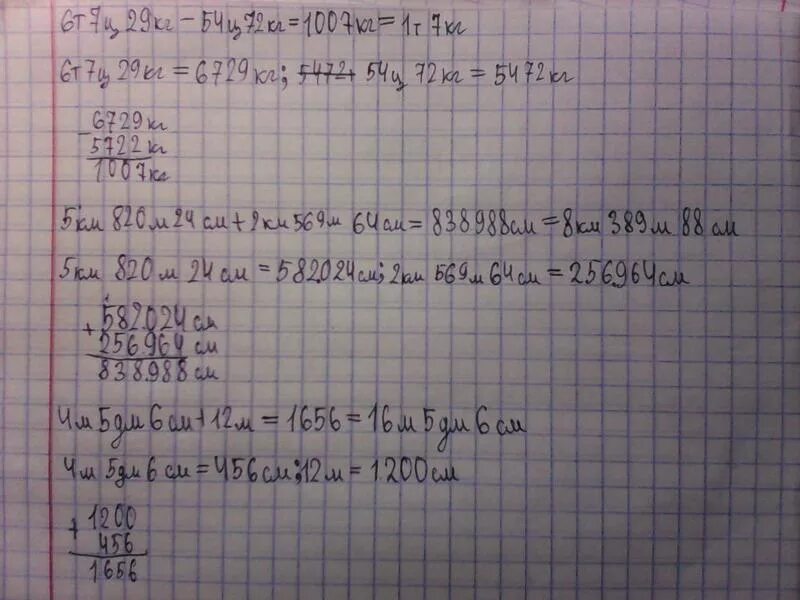 6т 7ц 29кг - 54ц 72кг = 1007кг = 1т 7кг
6т 7ц 29кг = 6729кг; 5472+ 54ц 72кг = 5472кг
- 6729кг
5722кг
1007кг
5км 820м 24см + 2км 569м 64см = 838.988см = 8км 389м 88см
5км 820м 24см = 582.024см; 2км 569м 64см = 256.964см
+ 582.024см
256.964см
838.988см
4м 5дм 6см + 12м = 1656 = 16м 5дм 6см
4м 5дм 6см = 456см; 12м = 1200см
+ 1200
456
1656